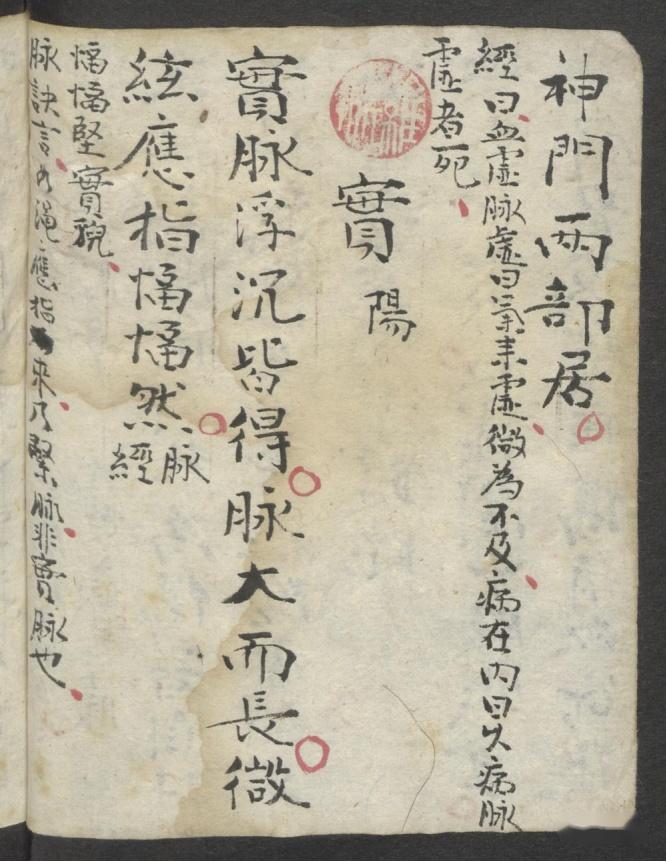 神門兩部居
經曰血虛脉虛曰氣來虛微為不及病在內曰久病脉
虛者死
實 陽
實脉浮沉皆得脉大而長微
絃應指愊愊然 脉經
愊愊堅實貌
脉訣言如繩應指來乃緊脉非實脉也